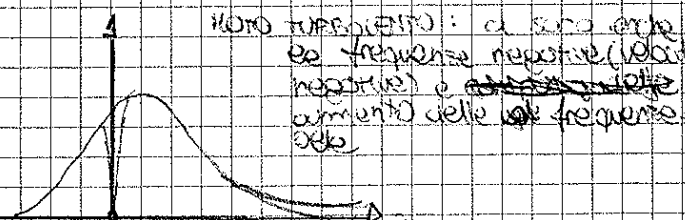 MOTO TURBOLENTO : ci sono anche
le frequenze negative (velocità
negative) e
aumento delle frequenze